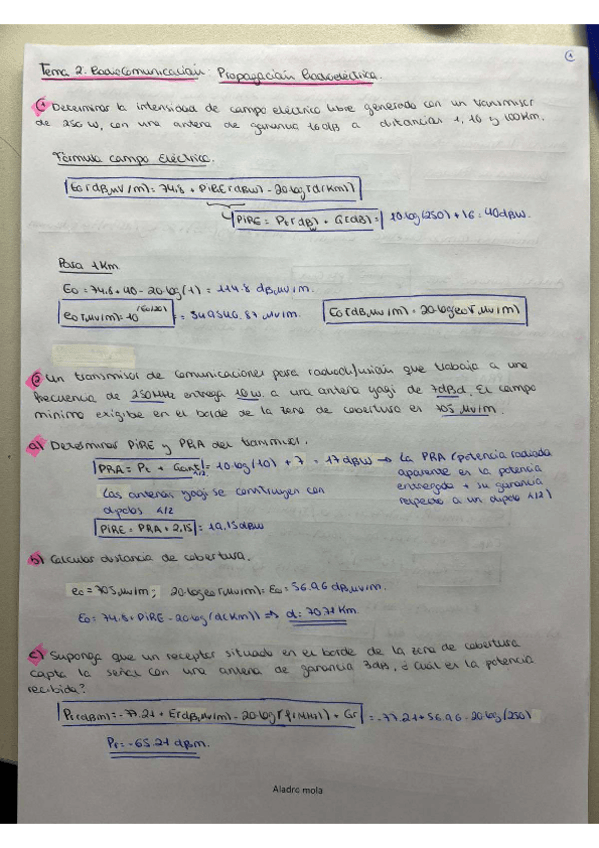 1
Tema 2. Radiocomunicación: Propagación Radioeléctrica.
① Determinar la intensidad de campo eléctrico libre generado con un transmisor
de 250 W, con una antena de ganancia 16 dB a distancias 1, 10 y 100 Km.
Fórmula campo Eléctrico.
Eo(dBμv/m) = 74.8 + PIRE(dBW) - 20·log(d(Km))
PIRE = Pt(dB) + G(dB) = 10·log(250) + 16 = 40dBW.
Para 1Km
Eo = 74.8 + 40 - 20·log(1) = 114.8 dBμv/m.
eo(μv/m) = 10^(Eo/20) = 549540.87 μv/m. Eo(dBμv/m) = 20·log eo(μv/m)
② Un transmisor de comunicaciones para radiodifusión que trabaja a una
frecuencia de 250MHz entrega 10W a una antena yagi de 7dBd. El campo
mínimo exigible en el borde de la zona de cobertura es 705 μv/m.
a) Determinar PIRE y PRA del transmisor.
PRA = Pt + Gant λ/2 = 10·log(10) + 7 = 17dBW → La PRA (potencia radiada
aparente es la potencia
entregada + su ganancia
respecto a un dipolo λ/2)
Las antenas yagi se construyen con
dipolos λ/2
PIRE = PRA + 2,15 = 19.15dBW
b) Calcular distancia de cobertura.
eo = 705 μv/m; 20·log eo(μv/m) = Eo = 56.96 dBμv/m.
Eo = 74.8 + PIRE - 20·log(d(Km)) ⇒ d = 70.71 Km.
c) Suponga que un receptor situado en el borde de la zona de cobertura
capta la señal con una antena de ganancia 3dB, ¿cuál es la potencia
recibida?
Pr(dBm) = -77.21 + E(dBμv/m) - 20·log(f(MHz)) + Gr = -77.21 + 56.96 - 20·log(250)
Pr = -65.21 dBm.
Aladro mola